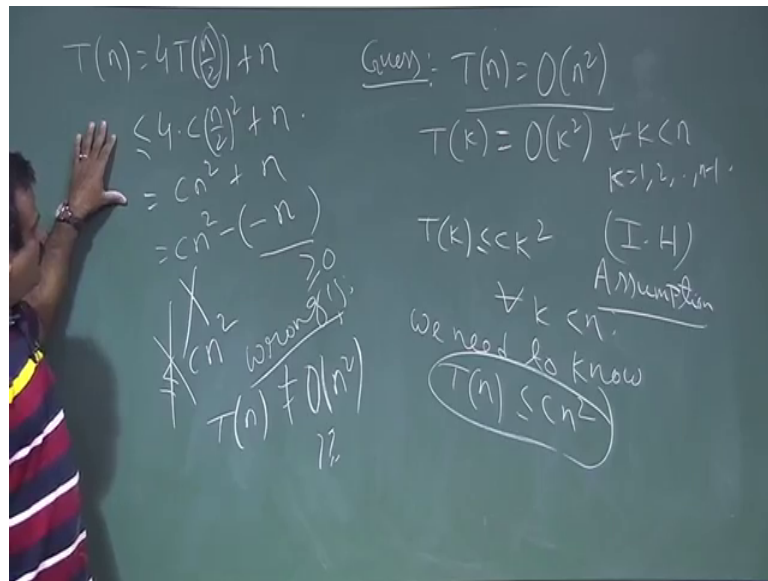 T(n) = 4T(n/2) + n
≤ 4·c(n/2)² + n.
= cn² + n
= cn² - (-n)
≥0
≤ cn²
wrong!!:
T(n) ≠ O(n²)
Guess: T(n) = O(n²)
T(k) = O(k²) ∀ k<n
k=1,2,..,n-1.
T(k) ≤ ck² (I.H)
Assumption
∀ k <n.
we need to know
T(n) ≤ cn²